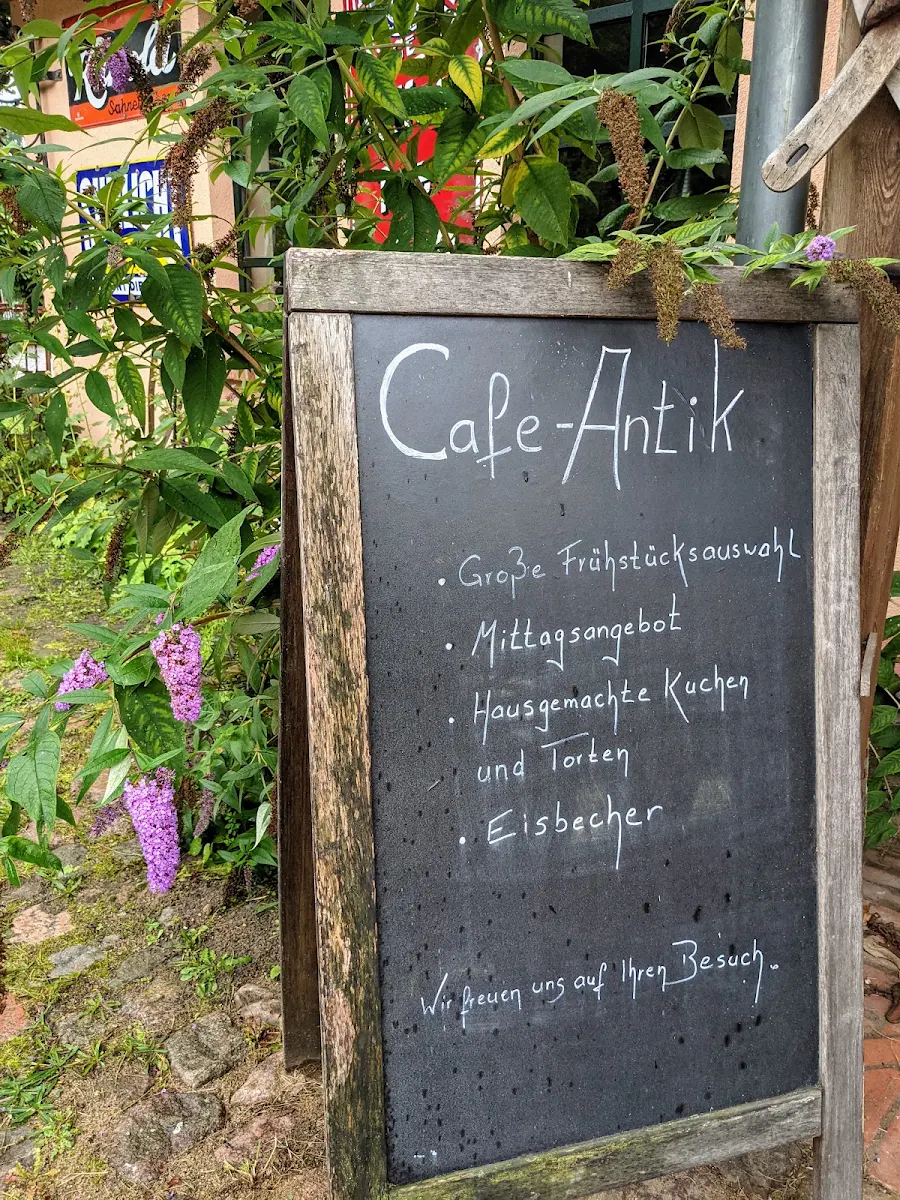 Sahne
Cafe-Antik
• Große Frühstücksauswahl
• Mittagsangebot
• Hausgemachte Kuchen
und Torten
• Eisbecher
Wir freuen uns auf Ihren Besuch.